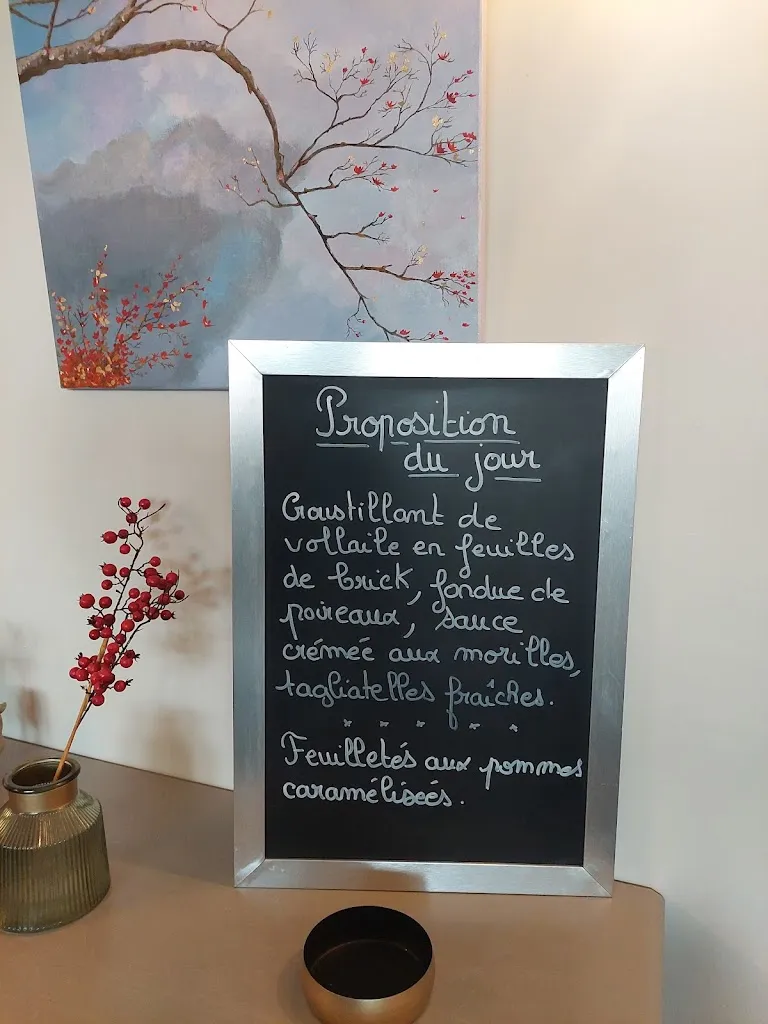 Proposition
du jour
Croustillant de
vollaile en feuilles
de brick, fondue de
poireaux, sauce
crémée aux morilles,
tagliatelles fraîches.
* * * * *
Feuilletés aux pommes
caramélisées.